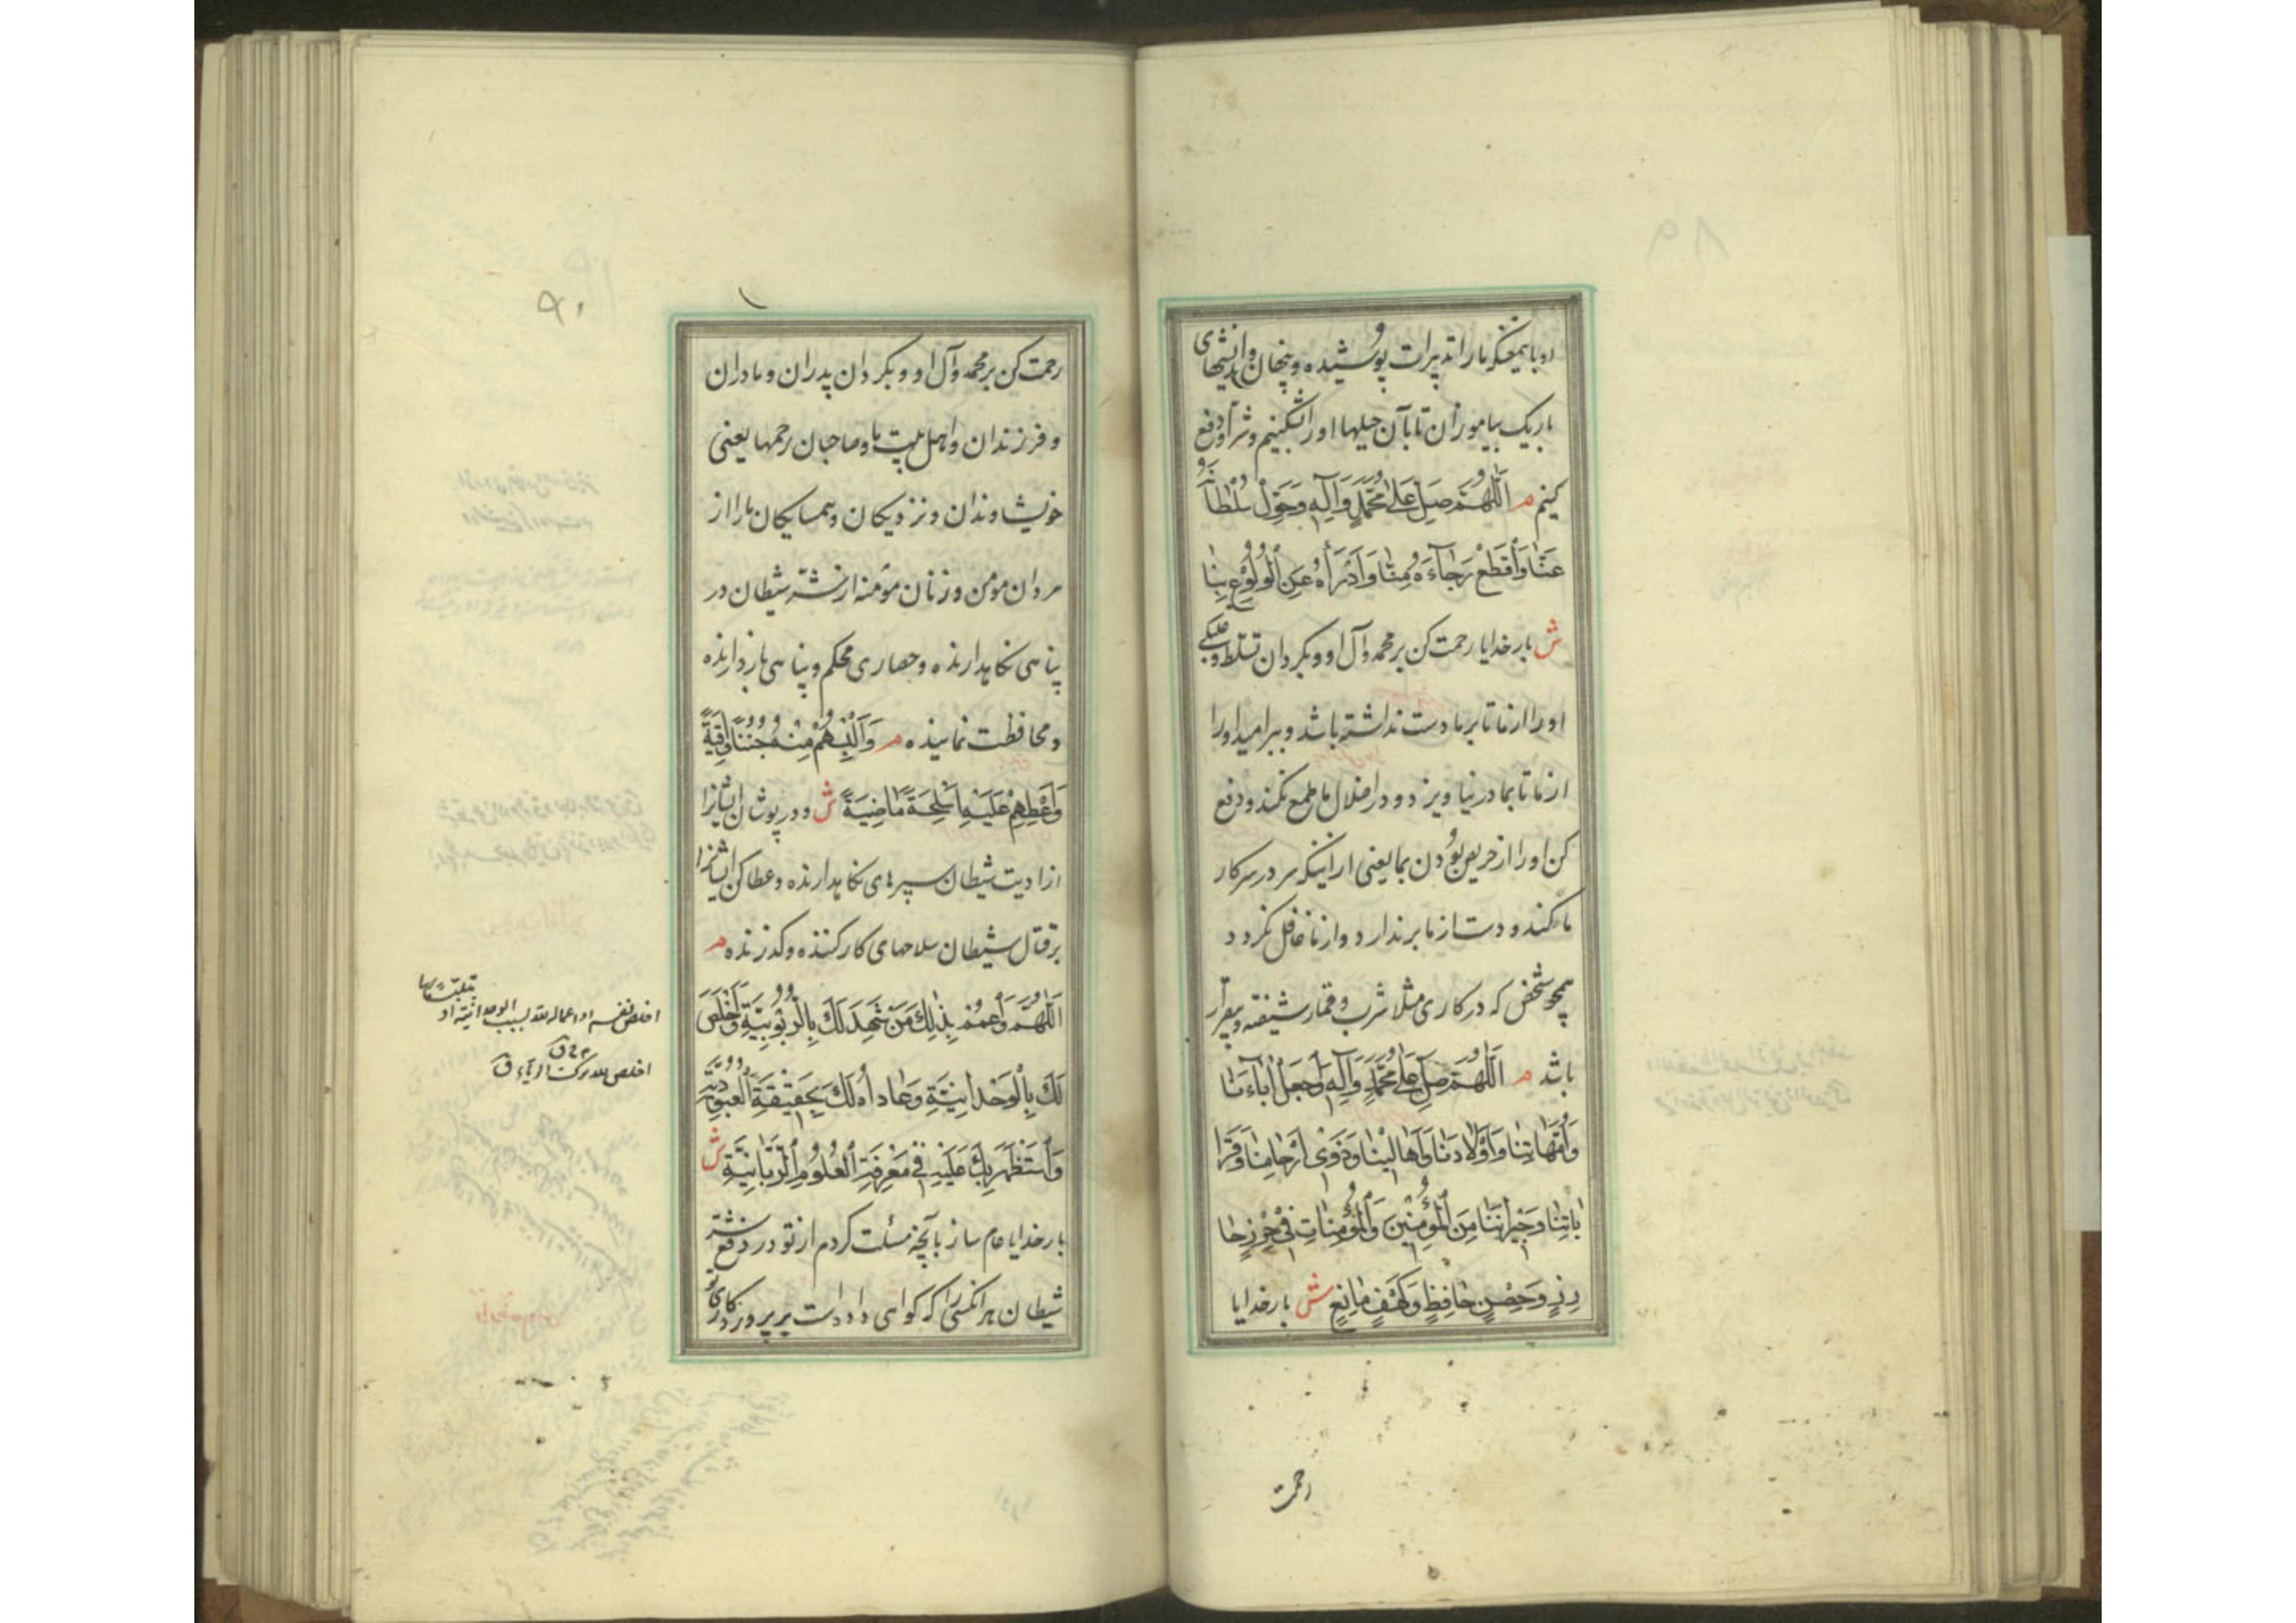 ۸۹
او یا همچنکه ما را تدبیرات پوشیده و پنهان و اندیشهای
باریک بیاموز ان تا بآن حیلها او را بشکنیم و شر او دفع
کنیم م اَللّٰهُمَّ صَلِّ عَلٰى مُحَمَّدٍ وَآلِهِ وَحَوِّلْ سُلْطانَهُ
عَنّا وَاقْطَعْ رَجاءَهُ مِنّا وَادْرَأْهُ عَنِ الْوُلُوعِ بِنا
ش بار خدایا رحمت کن بر محمد و آل او و بگردان تسلط و
او را از ما تا بر ما دست نداشته باشد و ببر امید او را
از ما تا بما در نیاویزد و در اضلال ما طمع نکند و دفع
کن او را از حریص بودن بما یعنی از اینکه سر در سر کار
ما کند و دست از ما بر ندارد و از ما غافل نکردد
همچو شخصی که در کاری مثلا شرب و قمار شیفته و بیقرار
باشد م اَللّٰهُمَّ صَلِّ عَلٰى مُحَمَّدٍ وَآلِهِ وَاجْعَلْ آباءَنا
وَاُمَّهاتِنا وَاَوْلادَنا وَاَهالِيْنا وَذَوِيْ اَرْحامِنا وَقَرا
باتِنا وَجِيْرانَنا مِنَ الْمُؤْمِنِيْنَ وَالْمُؤْمِناتِ فِيْ حِرْزٍ حا
رِزٍ وَحِصْنٍ حافِظٍ وَكَهْفٍ مانِعٍ ش بار خدایا
رحمت
۹۰
رحمت کن بر محمد و آل او و بکردان پدران و مادران
و فرزندان و اهل بیت ما و صاحبان رحمها یعنی
خویشاوندان و نزدیکان و همسایکان ما را از
مردان مومن و زنان مؤمنه از شر شیطان در
پناهی نکاهدارنده و حصاری محکم و پناهی بازدارنده
و محافظت نماینده م وَاَلْبِسْهُمْ مِنْهُ جُنَنًا واقِيَةً
وَاَعْطِهِمْ عَلَيْهِ اَسْلِحَةً ماضِيَةً ش و در پوشان ایشانرا
از اذیت شیطان سپرهای نکاهدارنده و عطا کن ایشانرا
بر قتال شیطان سلاحهای کار کننده و کذرنده م
اَللّٰهُمَّ وَاعْمُمْ بِذٰلِكَ مَنْ شَهِدَ لَكَ بِالرُّبُوبِيَّةِ وَاَخْلَصَ
لَكَ بِالْوَحْدانِيَّةِ وَعاداهُ لَكَ بِحَقِيْقَةِ الْعُبُودِيَّةِ
وَاسْتَظْهَرَ بِكَ عَلَيْهِ فِيْ مَعْرِفَةِ الْعُلُومِ الرَّبّانِيَّةِ ش
بار خدایا عام ساز بآنچه مسئلت کردم از تو در دفع شر
شیطان هر انکسی را که کواهی داده است بر پروردکاری تو
اخلص نفسه او اعماله لله بسبب الوحدانیة
اخلص لله ترک الریاء ق